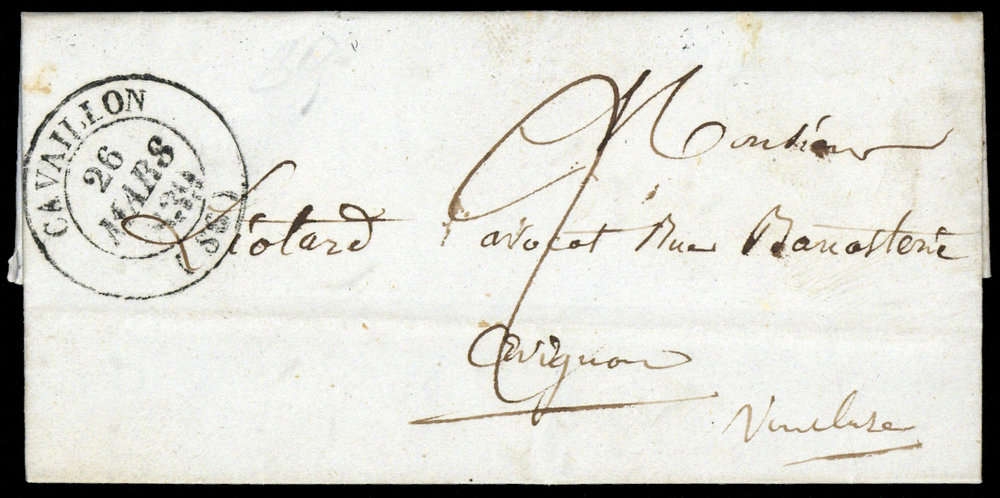 CAVAILLON
26
MARS
(86)
2
Monsieur
Liotard avocat Rue Banasterie
Avignon
Vaucluse